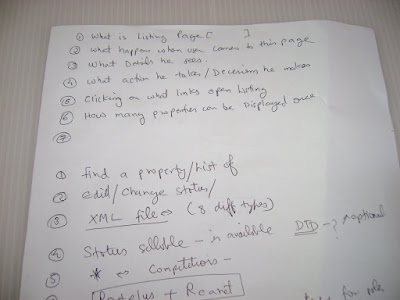 ① What is Listing Page [ ]
② What happen when user comes to this page
③ What Details he sees.
④ What action he takes/Decisions he makes
⑤ Clicking on what links open listing
⑥ How many properties can be displayed once
⑦
① find a property/list of
② edit/change status/
③ XML file ↔ (8 diff types)
④ Status sellable - is available DTD -? optional
⑤ * ↔ Competitors -
+
for